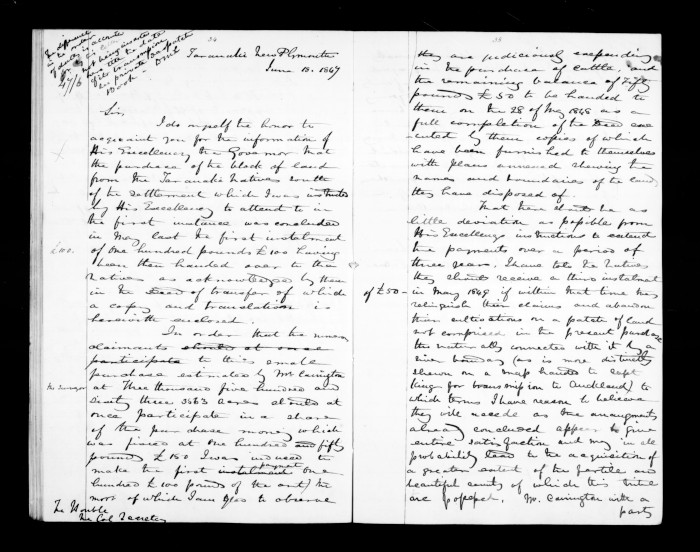 34
Taranaki New Plymouth
June 15. 1847
47/6
Sir,
I do myself the honor to
acquaint you for the information of
His Excellency the Governor that
the purchase of the block of land
from the Taranaki Natives south
of the Settlement which I was instructed
by His Excellency to attend to in
the first instance was concluded
in May last the first instalment
£100.
of One hundred pounds £100 having
been then handed over to the
Natives as acknowledged by them
in the Deed of transfer of which
a copy and translation is
herewith enclosed.
In order that the numerous
claimants should at once
participate to this small
purchase estimated by Mr Carrington
the Surveyor
at Three thousand five hundred and
sixty three 3563 acres should at
once participate in a share
of the purchase money which
was fixed at One hundred and fifty
pounds £150 I was induced to
make the first instalment payment one
hundred £100 pounds of the amt) the
most of which I am glad to observe
The Honble
The Col Secretary
35
they are judiciously expending
in the purchase of cattle and
the remaining balance of Fifty
pounds £50 to be handed to
them on the 28 of May 1848 as a
full completion of the Deed exe-
cuted by them copies of which
have been furnished to themselves
with plans annexed shewing the
names and boundaries of the land
they have disposed of.
That there should be as
little deviation as possible from
His Excellency instructions to extend
the payments over a period of
three years, I have told the Natives
they should receive a third instalment
of £50 –
in May 1849 if within that time they
relinquish their claims and abandon
their cultivations on a patch of land
not comprised in the present purchase
tho naturally connected with it by a
river boundary (as is more distinctly
shewn on a map handed to Capt
King for transmission to Auckland) to
which terms I have reason to believe
they will accede as the arrangements
already concluded appear to give
entire satisfaction and may in all
probability lead to the acquisition of
a greater extent of the fertile and
beautiful country of which this tribe
are possessed. Mr. Carrington with a
party